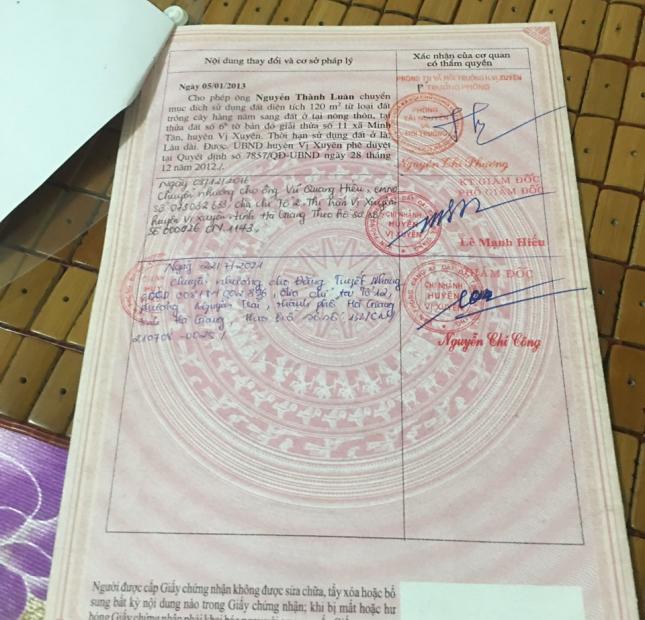 Nội dung thay đổi và cơ sở pháp lý
Xác nhận của cơ quan
có thẩm quyền
Ngày 05/01/2013
Cho phép ông Nguyễn Thành Luân chuyển
mục đích sử dụng đất diện tích 120 m² từ loại đất
trồng cây hàng năm sang đất ở tại nông thôn, tại
thửa đất số 6 tờ bản đồ giải thửa số 11 xã Minh
Tân, huyện Vị Xuyên. Thời hạn sử dụng đất ở là:
Lâu dài. Được UBND huyện Vị Xuyên phê duyệt
tại Quyết định số 7857/QĐ-UBND ngày 28 tháng
12 năm 2012./.
PHÒNG TN VÀ MÔI TRƯỜNG H.VỊ XUYÊN
TRƯỞNG PHÒNG
PHÒNG
TÀI NGUYÊN
VÀ
MÔI TRƯỜNG
Nguyễn Chí Phương
Chuyển nhượng cho ông Vũ Quang Hiếu,
địa chỉ Tổ 2, Thị trấn Vị Xuyên
huyện Vị Xuyên tỉnh Hà Giang Theo hồ sơ số
KT.GIÁM ĐỐC
PHÓ GIÁM ĐỐC
CHI NHÁNH
HUYỆN
VỊ XUYÊN
Lê Mạnh Hiếu
chuyển nhượng cho Đặng Tuyết Nhung
địa chỉ tại Tổ 12,
phường Nguyễn Trãi, thành phố Hà Giang
tỉnh Hà Giang, theo hồ sơ số
GIÁM ĐỐC
CHI NHÁNH
HUYỆN
VỊ XUYÊN
Nguyễn Chí Công
Người được cấp Giấy chứng nhận không được sửa chữa, tẩy xóa hoặc bổ
sung bất kỳ nội dung nào trong Giấy chứng nhận; khi bị mất hoặc hư